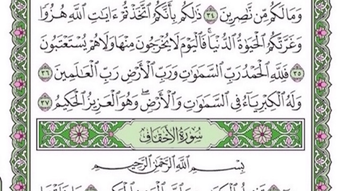 وَمَا لَكُم مِّن نَّٰصِرِينَ ٣٤ ذَٰلِكُم بِأَنَّكُمُ ٱتَّخَذْتُمْ ءَايَٰتِ ٱللَّهِ هُزُوًا
وَغَرَّتْكُمُ ٱلْحَيَوٰةُ ٱلدُّنْيَا فَٱلْيَوْمَ لَا يُخْرَجُونَ مِنْهَا وَلَا هُمْ يُسْتَعْتَبُونَ
٣٥ فَلِلَّهِ ٱلْحَمْدُ رَبِّ ٱلسَّمَٰوَٰتِ وَرَبِّ ٱلْأَرْضِ رَبِّ ٱلْعَٰلَمِينَ ٣٦
وَلَهُ ٱلْكِبْرِيَآءُ فِى ٱلسَّمَٰوَٰتِ وَٱلْأَرْضِ ۖ وَهُوَ ٱلْعَزِيزُ ٱلْحَكِيمُ ٣٧
سُورَةُ الأَحْقَافِ
بِسْمِ ٱللَّهِ ٱلرَّحْمَٰنِ ٱلرَّحِيمِ